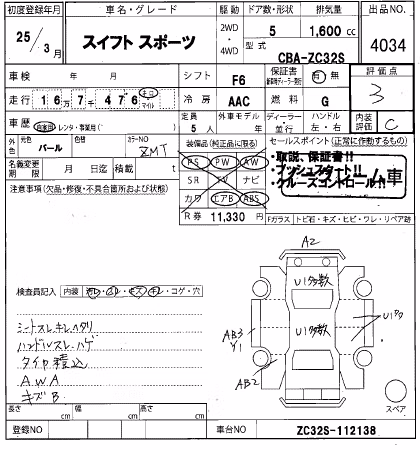 初度登録年月 車名・グレード 駆動 ドア数・形状 排気量 出品NO.
25/3月 スイフト スポーツ 2WD・4WD 5 1,600 cc 4034
型式 CBA-ZC32S
車検 年 月 シフト F6 保証書 有 無 評価点 3
走行 16万7千476 キロ マイル 冷房 AAC 燃料 G
車歴 自家用 レンタ・事業用( ) 定員 5人 外車モデル 年 ディーラー・並行 ハンドル 左・右 内装評価 C
外色 元色 パール カラーNO ZMT 装備品(純正品に限る) セールスポイント(正常に作動するもの)
名義変更期限 月 日迄 積載 t PS PW AW
・取説、保証書!!
SR TV ナビ ・プッシュスタート!!
注意事項(欠品・修復・不具合箇所および状態) カワ エアB ABS ・クルーズコントロール!!
R券 11,330 円 Fガラス トビ石・キズ・ヒビ・ワレ・リペア跡
検査員記入 内装 キズ・キレ・コゲ・穴
シートスレキレヘタリ
ハンドルスレハゲ
タイヤ積込
AWA
キズB
A2
U1多数
U1多数
AB3
Y1
AB2
スペア
長さ cm 幅 cm 高さ cm
登録NO 車台NO ZC32S-112138